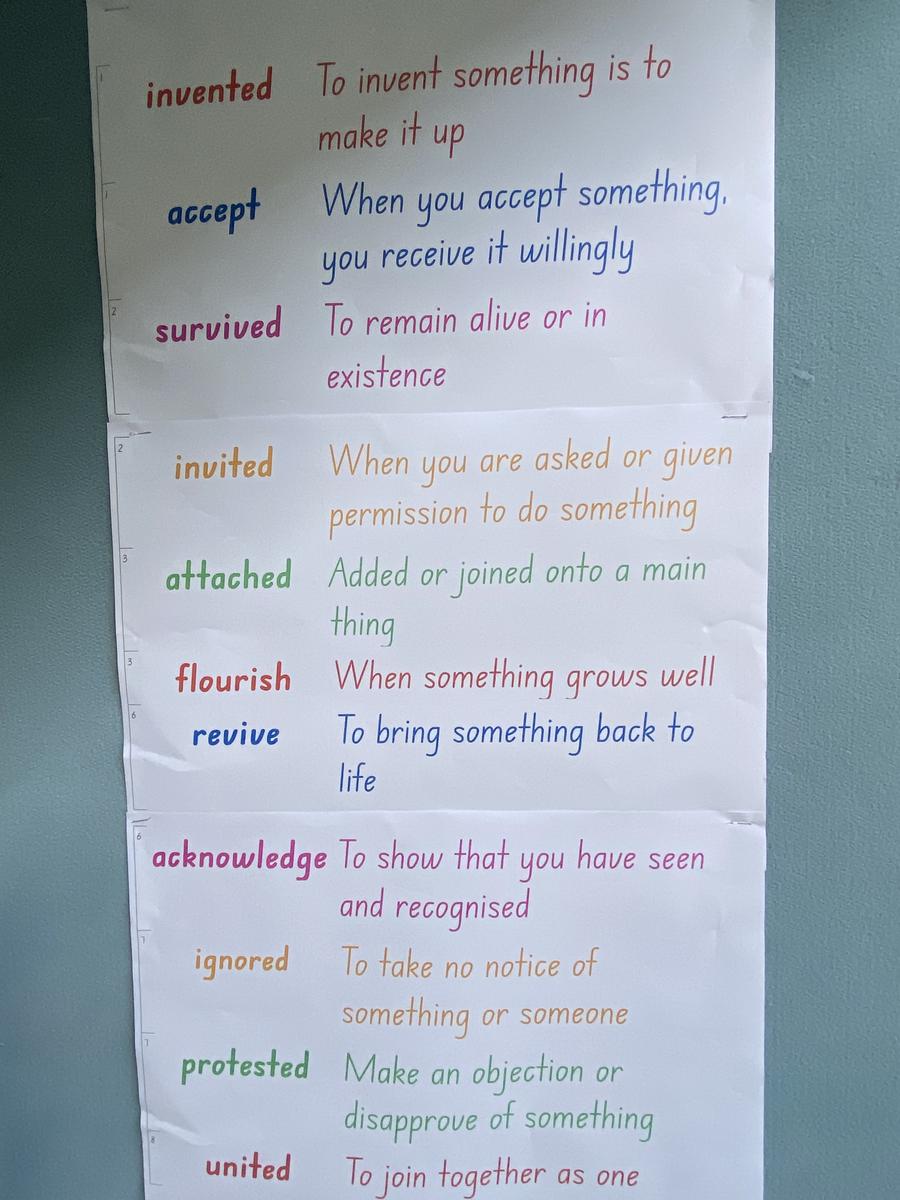 1
invented To invent something is to
make it up
1
accept When you accept something,
you receive it willingly
2
survived To remain alive or in
existence
2
invited When you are asked or given
permission to do something
3
attached Added or joined onto a main
thing
3
flourish When something grows well
6
revive To bring something back to
life
6
acknowledge To show that you have seen
and recognised
7
ignored To take no notice of
something or someone
7
protested Make an objection or
disapprove of something
8
united To join together as one